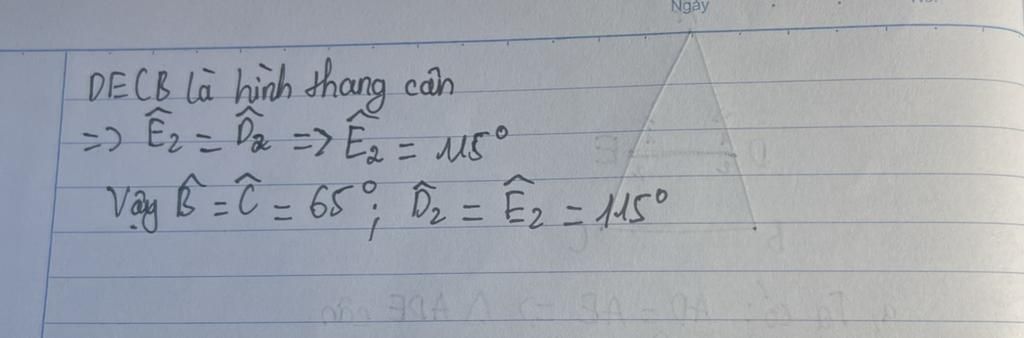 Ngày
DECB là hình thang cân
=> Ê₂ = D̂₂ => Ê₂ = 115°
Vậy B̂ = Ĉ = 65°; D̂₂ = Ê₂ = 115°